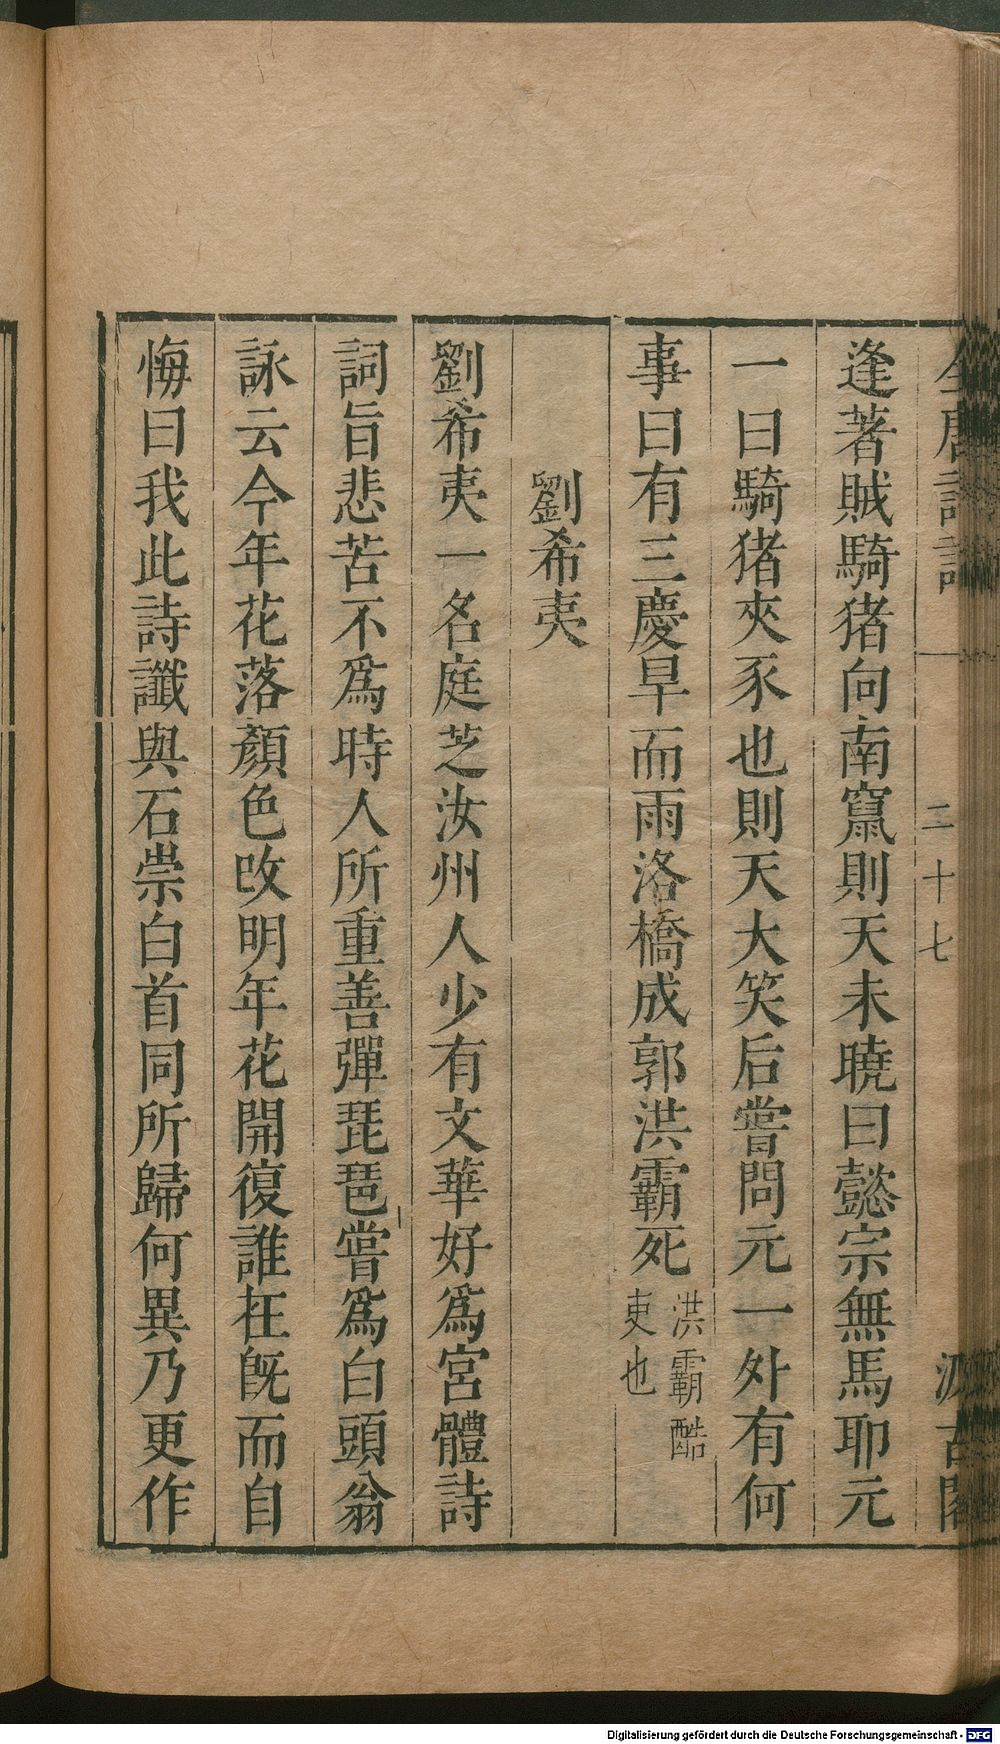 逢著賊騎猪向南竄則天未曉曰懿宗無馬耶元
一曰騎猪夾豕也則天大笑后嘗問元一外有何
事曰有三慶旱而雨洛橋成郭洪霸死洪霸酷吏也
劉希夷
劉希夷一名庭芝汝州人少有文華好爲宮體詩
詞旨悲苦不爲時人所重善彈琵琶嘗爲白頭翁
詠云今年花落顏色改明年花開復誰在既而自
悔曰我此詩讖與石崇白首同所歸何異乃更作
二十七
Digitalisierung gefördert durch die Deutsche Forschungsgemeinschaft - DFG